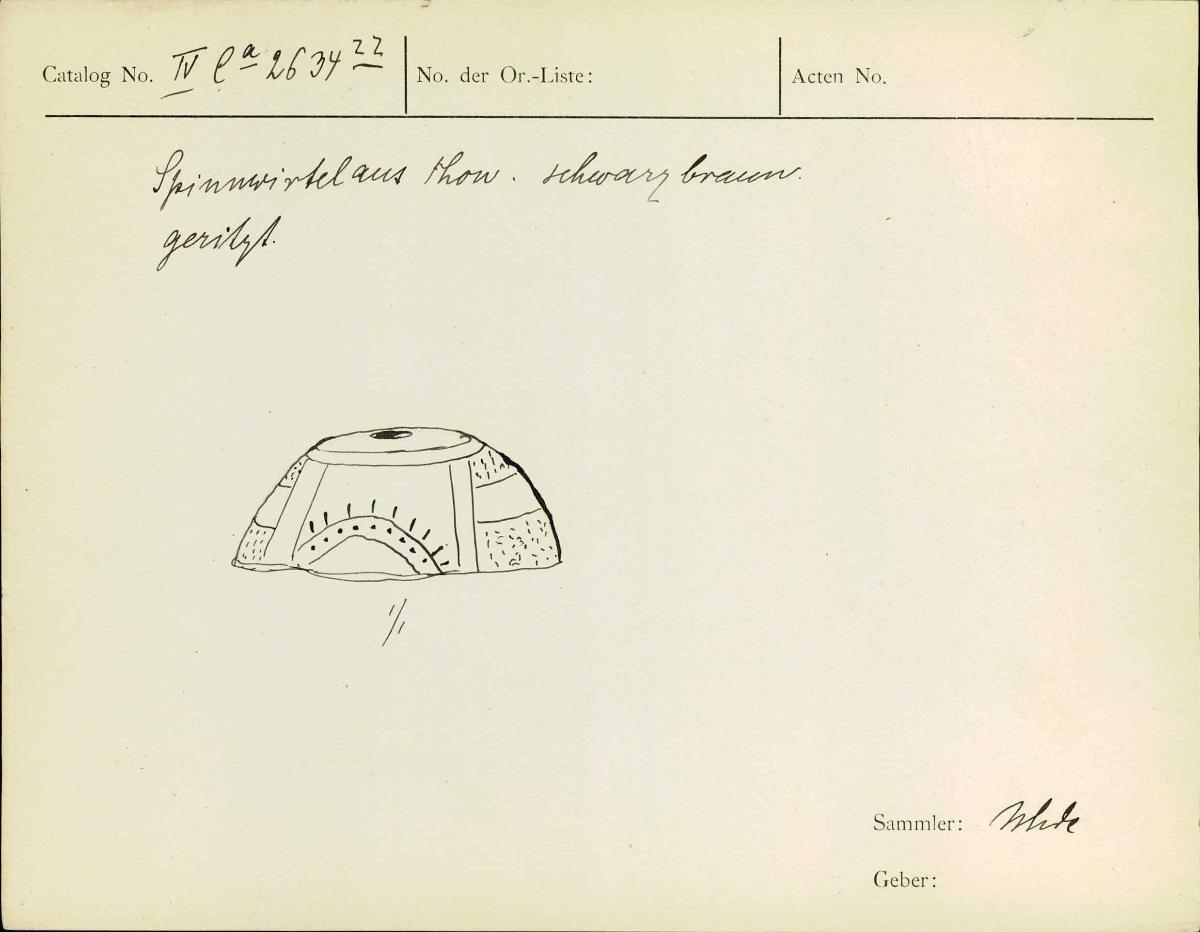 Catalog No. IV Ca 2634 22
No. der Or.-Liste:
Acten No.
Spinnwirtel aus Thon. schwarzbraun.
geritzt.
1/1
Sammler: Uhde
Geber: